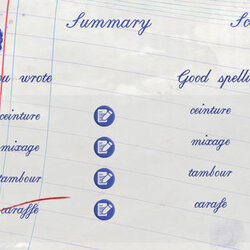 Summary Sc
u wrote Good spelli
ceinture ceinture
mixage mixage
tambour tambour
caraffe carafe